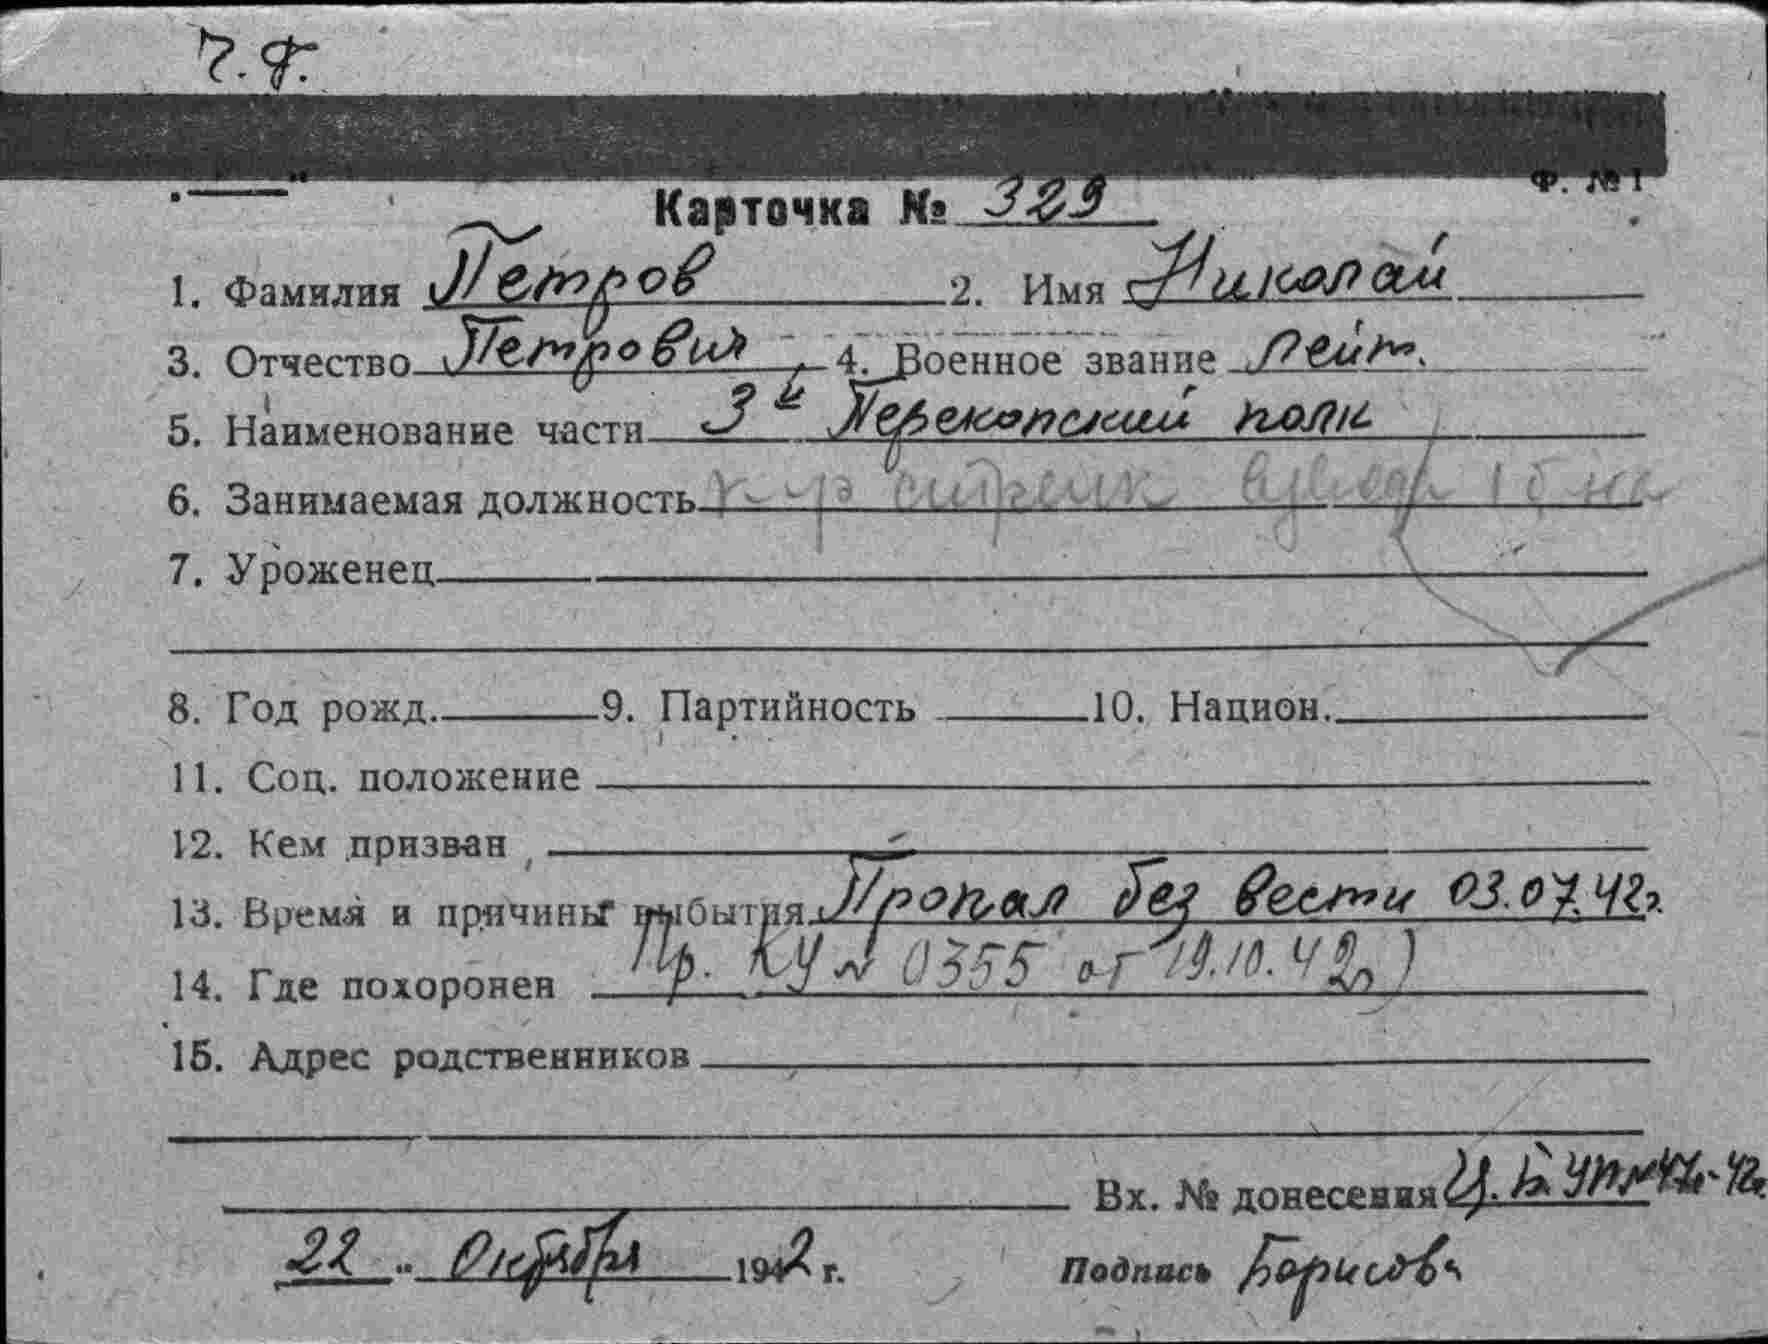 Ч.Ф.
Ф. № 1
Карточка № 329
1. Фамилия Петров 2. Имя Николай
3. Отчество Петрович 4. Военное звание Лейт.
5. Наименование части 3й Перекопский полк
6. Занимаемая должность к-р стрелк взвода
7. Уроженец
8. Год рожд. 9. Партийность 10. Национ.
11. Соц. положение
12. Кем призван
13. Время и причины выбытия Пропал без вести 03.07.42г.
14. Где похоронен Пр. КУ № 0355 от 19.10.42г)
15. Адрес родственников
Вх. № донесения
22 " Октября 1942 г. Подпись Борисова